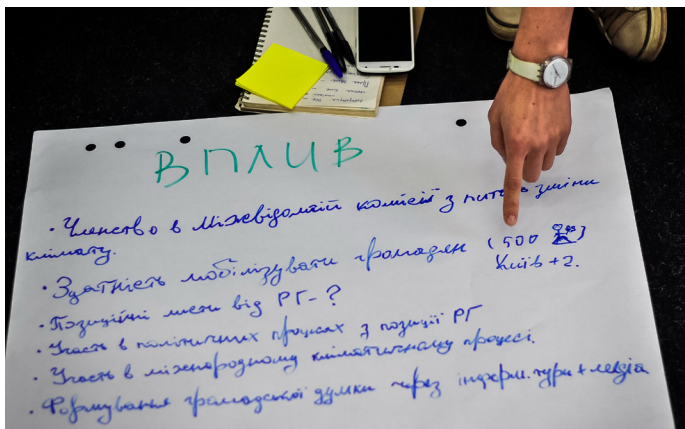 ВПЛИВ
· Членство в Міжвідомчій комісії з питань зміни
клімату.
· Здатність мобілізувати громадян (500
Київ + 2.
· Позиційні листи від РГ - ?
· Участь в політичних процесах з позиції РГ
· Участь в міжнародному кліматичному процесі.
· Формування громадської думки через інформ. тури + медіа